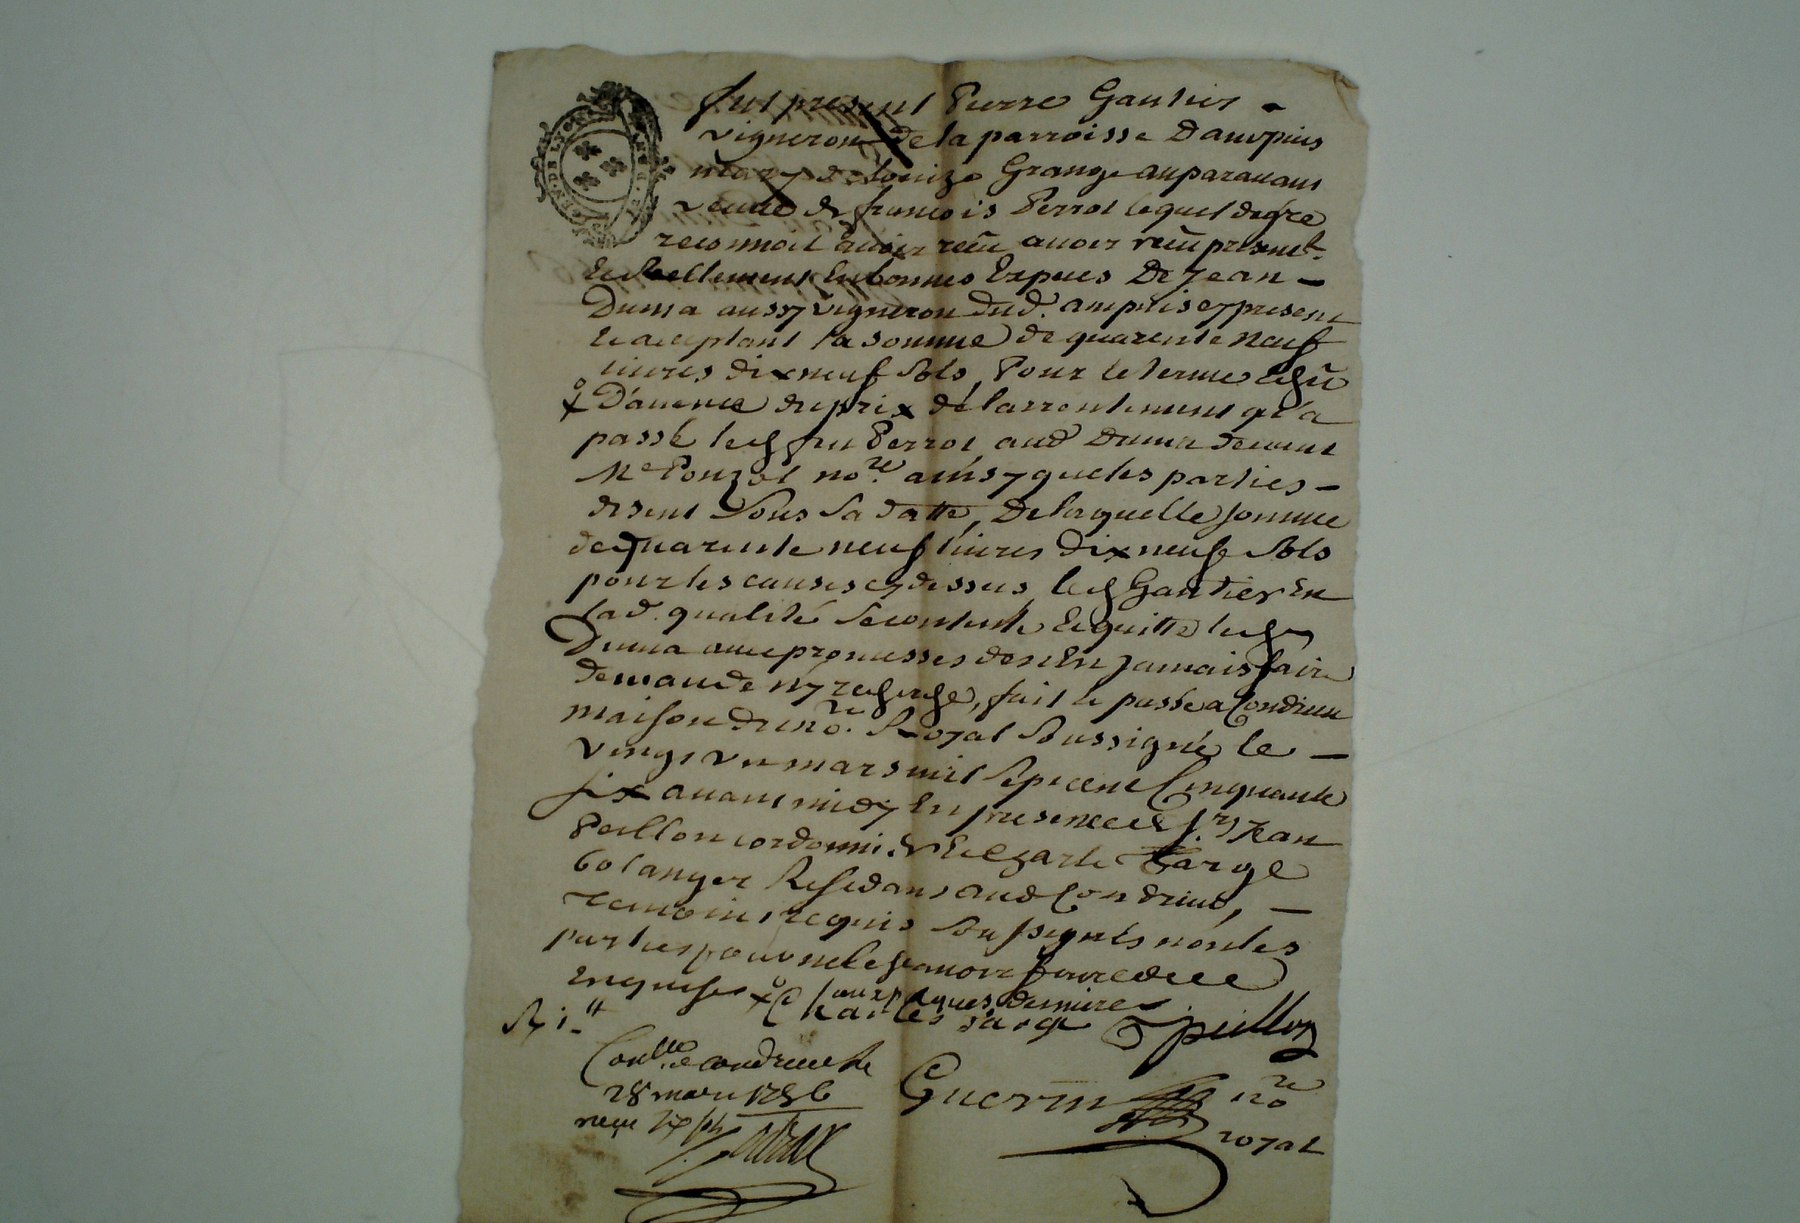 fut present Pierre Gautier
vigneron de la parroisse Dampuis
mary de Louize Grange auparavant
veuve de françois Perrot lequel de gre
reconnoit avoir reçu avoir reçu presentt.
Et reellement En bonnes Espeçes De Jean
Duma aussy vigneron dud. ampuis cy present
Et aceptant la somme de quarente neuf
livres dix neuf sols, Pour le terme echû
D'avence du prix de l'arrentement qu'a
passé led. feu Perrot aud Duma devant
Me Ponzet nore. ainsy que les parties
disent sous sa datte, De laquelle somme
de quarente neuf livres dix neuf sols
pour les causes cy dessus led Gautier En
lad. qualité se contente Et quitte led.
Duma avec promesses de n'En jamais faire
demande ny recherche, fait et passé a Condrieu
maison du nore. Royal soussigné le
vingt un mars mil sept cent Cinquante
six avant midy En presence de Srs. Jean
Peillon cordonnier Et Charle Farge
bolanger Residans aud Condrieu,
Temoins requis soussignés non les
parties pour ne le sçavoir faire de ce
enquises
aux paques dernieres
Charles Farge Jpeillon
Conlle. a condrieu le
28 mars 1756
reçu
Guerin nore
royal